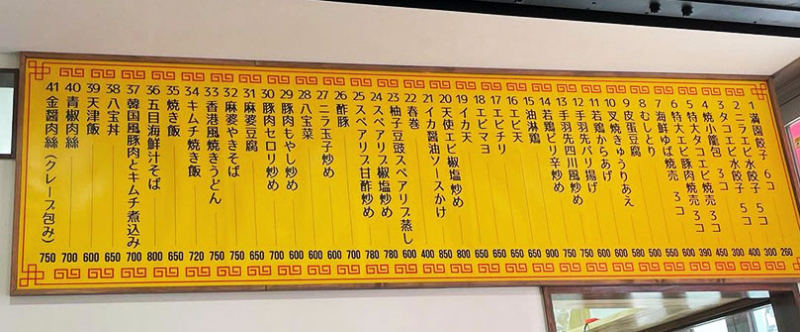 1 満園餃子 6コ 260
2 ニラエビ水餃子 5コ 300
3 タコエビ水餃子 5コ 400
3 タコエビ水餃子 3コ 300
4 焼小籠包 3コ 450
5 特大タコエビ焼売 3コ 390
6 特大エビ豚肉焼売 3コ
7 海鮮ゆば焼売 3コ
8 むしとり
9 皮蛋豆腐
10 叉焼きゅうりあえ
11 若鶏からあげ
12 手羽先パリパリ揚げ
13 手羽先四川風炒め
14 若鶏ピリ辛炒め
15 油淋鶏
16 エビ天
17 エビチリ
18 エビマヨ
19 イカ天
20 天使エビ椒塩炒め
21 イカ醤油ソースかけ
22 春巻
23 柚子豆豉スペアリブ蒸し
24 スペアリブ椒塩炒め
25 スペアリブ甘酢炒め
26 酢豚
27 ニラ玉子炒め
28 八宝菜
29 豚肉もやし炒め
30 豚肉セロリ炒め
31 麻婆豆腐
32 麻婆やきそば
33 香港風焼きうどん 750
34 キムチ焼き飯 720
35 焼き飯 650
36 五目海鮮汁そば 800
37 韓国風豚肉とキムチ煮込み 700
38 八宝丼 650
39 天津飯 600
40 青椒肉絲 700
41 金醤肉絲（クレープ包み） 750